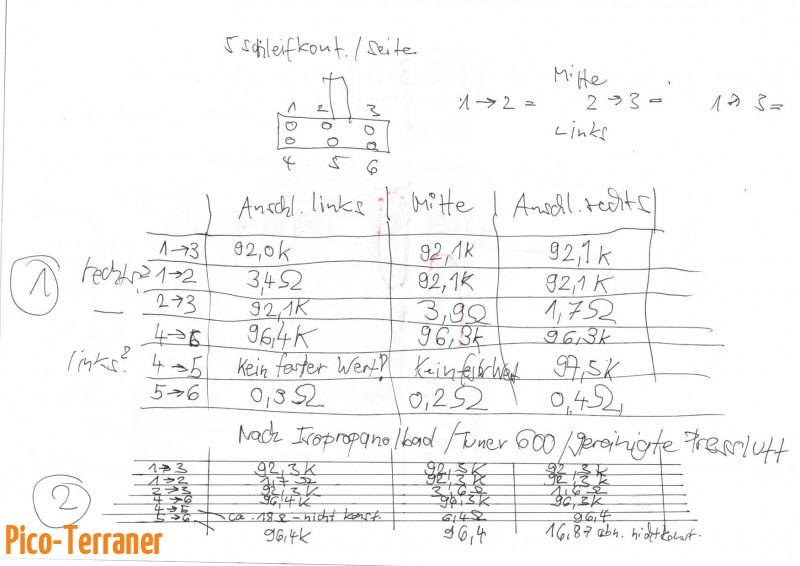 5 Schleifkont./Seite
Mitte
1→2 = 2→3 = 1→3 =
Links
1 2 3
4 5 6
Anschl. links Mitte Anschl. rechts
1→3 92,0k 92,1k 92,1k
1 rechts? 1→2 3,4Ω 92,1k 92,1k
2→3 92,1k 3,9Ω 1,7Ω
4→6 96,4k 96,3k 96,3k
links? 4→5 Kein fester Wert? Kein fester Wert 97,5k
5→6 0,3Ω 0,2Ω 0,4Ω
Nach Isopropanolbad/Tuner 600/gereinigte Pressluft
1→3 92,3k 92,3k 92,3k
1→2 1,7Ω 92,3k 92,3k
2 2→3 92,3k 3,6Ω 1,6Ω
4→6 96,4k 96,3k 96,3k
4→5 ca. 18Ω - nicht konst. 6,4Ω 96,4
5→6 96,4k 96,4 16,87 abn. nicht konst.
Pico-Terraner